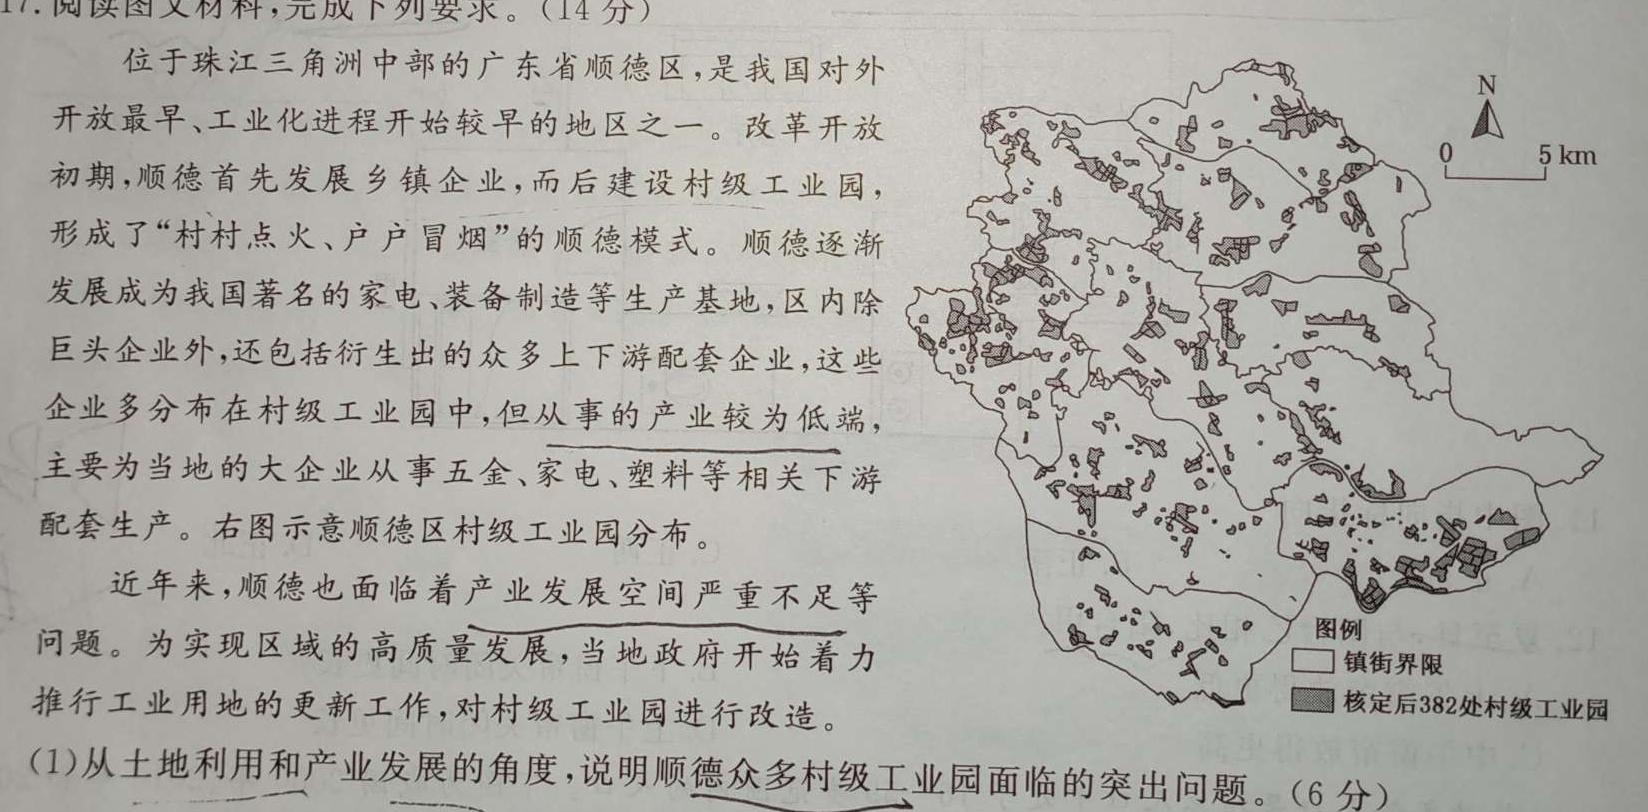 17. 阅读图文材料,完成下列要求。(14 分)
位于珠江三角洲中部的广东省顺德区,是我国对外
开放最早、工业化进程开始较早的地区之一。改革开放
初期,顺德首先发展乡镇企业,而后建设村级工业园,
形成了“村村点火、户户冒烟”的顺德模式。顺德逐渐
发展成为我国著名的家电、装备制造等生产基地,区内除
巨头企业外,还包括衍生出的众多上下游配套企业,这些
企业多分布在村级工业园中,但从事的产业较为低端,
主要为当地的大企业从事五金、家电、塑料等相关下游
配套生产。右图示意顺德区村级工业园分布。
近年来,顺德也面临着产业发展空间严重不足等
问题。为实现区域的高质量发展,当地政府开始着力
推行工业用地的更新工作,对村级工业园进行改造。
(1)从土地利用和产业发展的角度,说明顺德众多村级工业园面临的突出问题。(6 分)
N
0 5 km
图例
镇街界限
核定后382处村级工业园